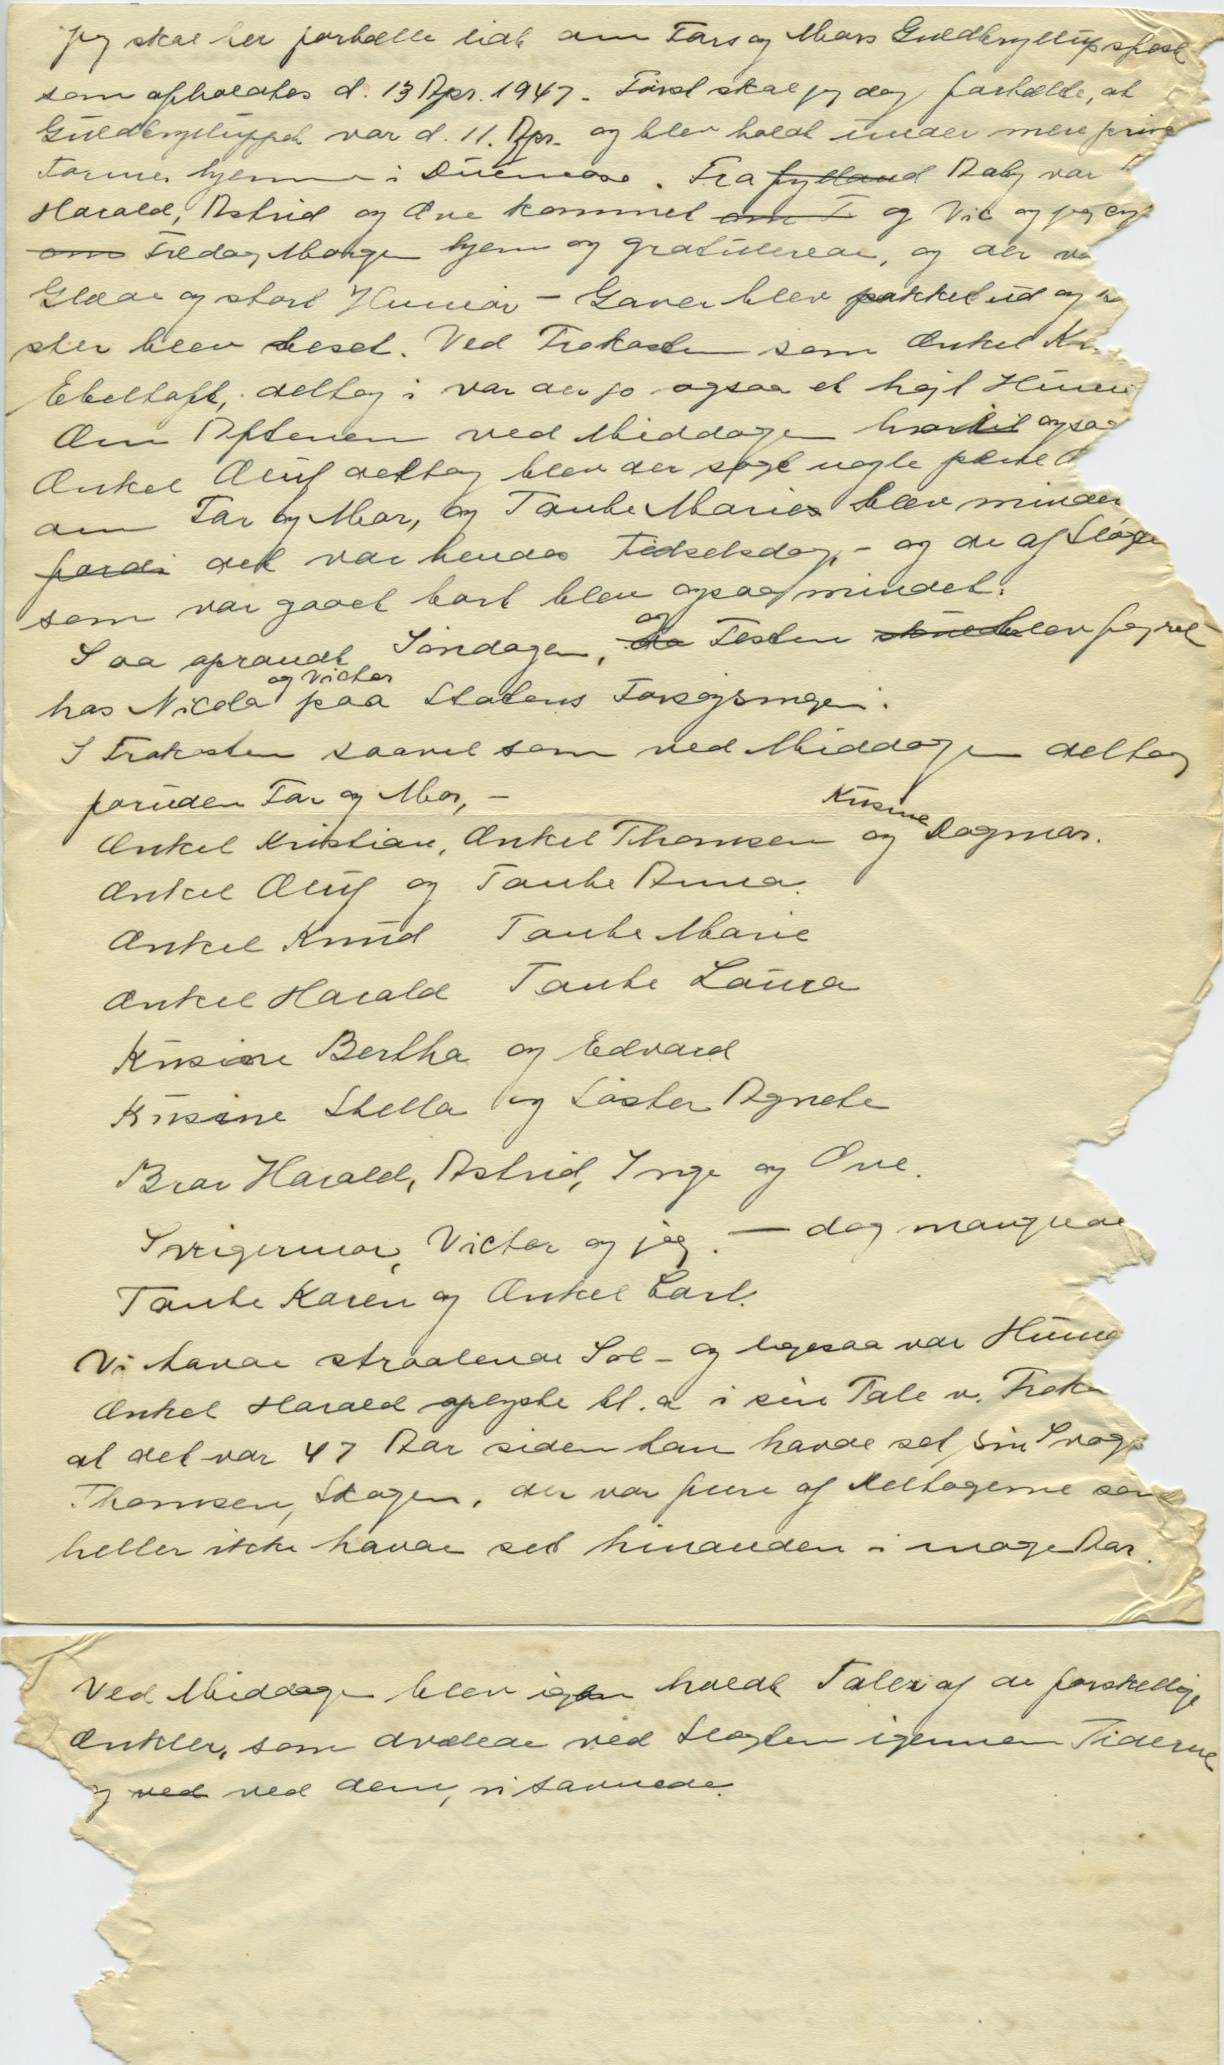 Jeg skal her fortælle lidt om Fars og Mors Guldbryllupsfest
som afholdtes d. 13 Apr. 1947. Først skal jeg dog fortælle, at
Guldbryllyppet var d. 11. Apr. og blev holdt under mere priva
Former hjemme i Duemose. Fra Jylland Aaby var
Harald, Astrid og Ove kommet om F og Vic og jeg cyk
om Fredag Morgen hjem og gratulerede, og der va
Glæde og stort Humør - Gaver blev pakket ud og
ster blev læset. Ved Frokosten som Onkel Kr
Ebeltoft, deltog i var der jo ogsaa et højt Humø
Om Aftenen ved Middagen hvortil ogsaa
Onkel Oluf deltog blev der sagt nogle pæne O
om Far og Mor, og Tante Maries blev minde
fordi det var hendes Fødselsdag, - og de af Slægte
som var gaaet bort blev ogsaa mindet.
Saa oprandt Søndagen, da og Festen blev fejret
hos Nicola og Victor paa Statens Forsøgsmejeri.
I Frokosten saavel som ved Middagen deltog
foruden Far og Mor, -
Onkel Kristian, Onkel Thomsen og Kusine Dagmar.
Onkel Oluf og Tante Anna.
Onkel Knud Tante Marie
Onkel Harald Tante Laura
Kusine Bertha og Edvard
Kusine Stella og Søster Agnete
Bror Harald, Astrid, Inge og Ove.
Svigermor, Victor og jeg. - dog manglede
Tante Karen og Onkel Carl.
Vi havde straalende Sol - og ligesaa var Humø
Onkel Harald oplyste bl. a i sin Tale v. Froko
at det var 47 Aar siden han havde set sin Svoger
Thomsen, Skagen, der var flere af Deltagerne som
heller ikke havde set hinanden i mange Aar.
Ved Middagen blev igen holdt Taler af de forskellige
Onkler, som dvælede ved Slægten igennem Tiderne
og ved ved dem, vi savnede.